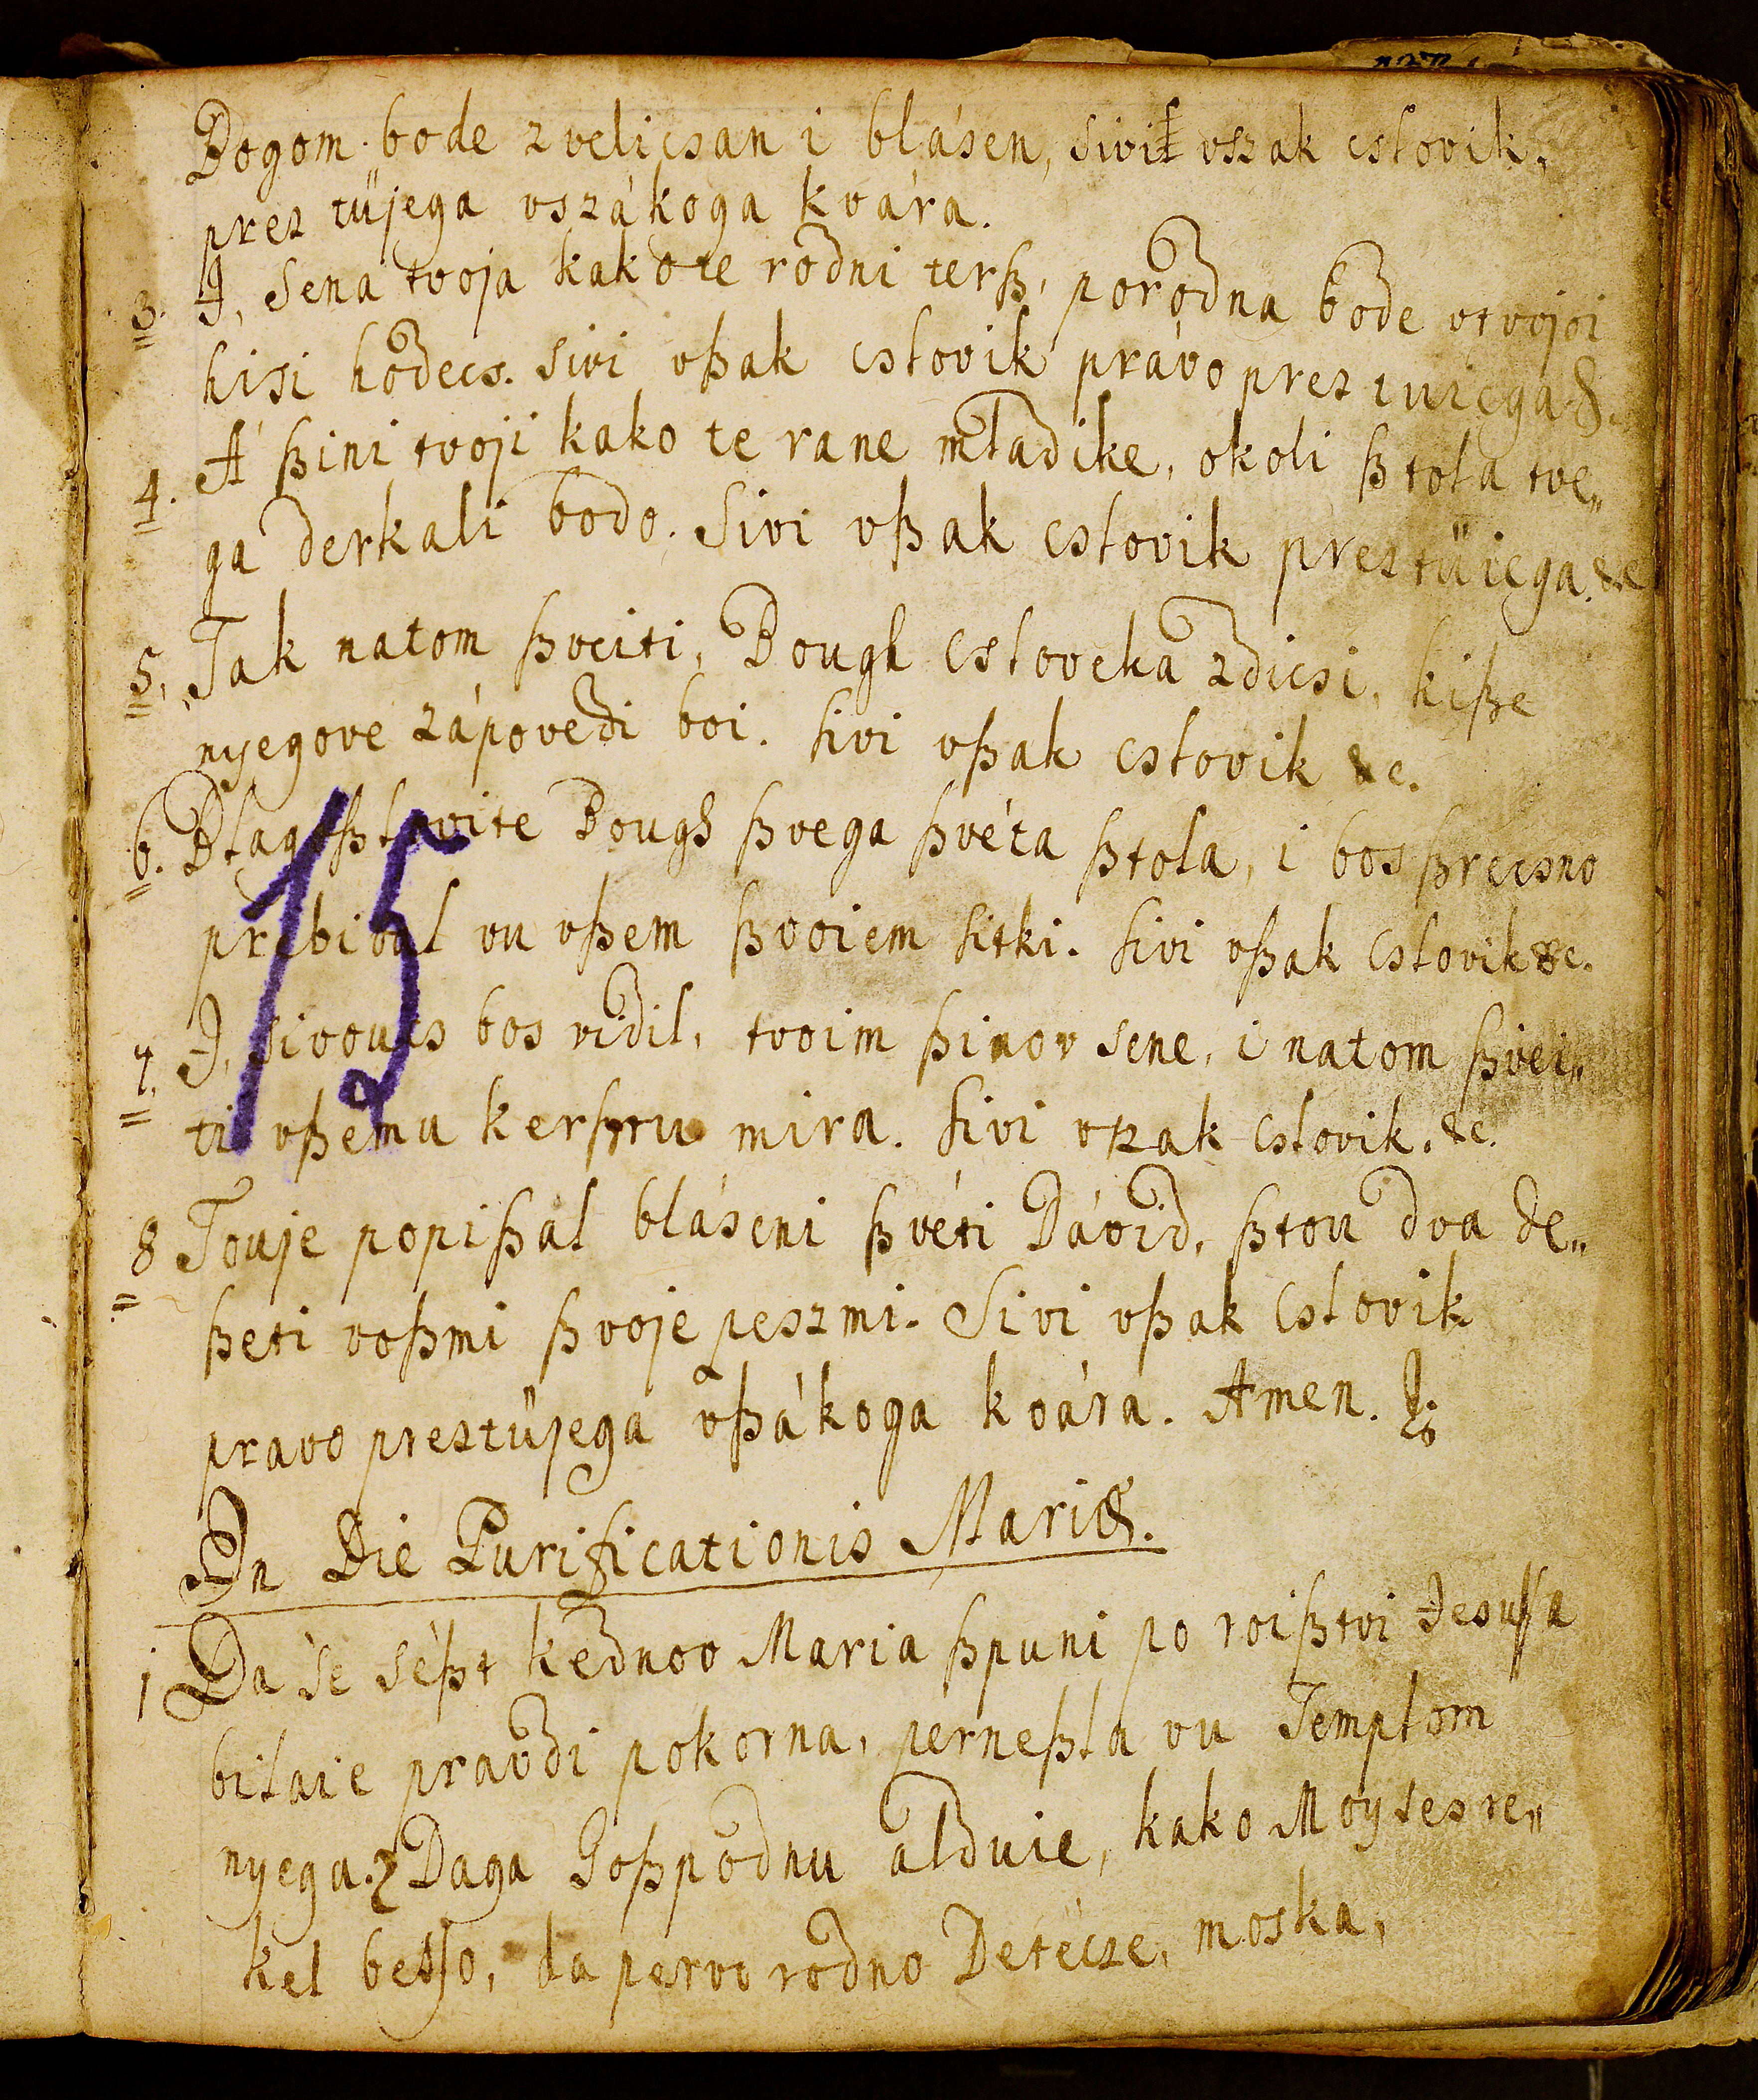 Bogom bode zvelicsan i blásen, sivi vszak cslovik,
prez tüjega vszákoga kvára.
3. I, sena tvoja kak ote rodni terß, porodna bode vtvojoi
hisi hodecs. sivi vßak cslovik právo prez tuiega &.
4. A ßini tvoji kako te rane mladike, okoli ßtola tve„
ga derkali bodo. Sivi vßak cslovik preztüiega. &c
5. Tak natom ßveiti, Bough csloveka zdicsi, kiße
nyegove zápovedi boi. sivi vßak cslovik &c.
6. Blagoßlovite Bough ßvega ßvéta ßtola, i bos ßrecsno
prebival vu vßem ßvoiem sitki. sivi vßak cslovik &c.
15
7. I, sivoucs bos vidil, tvoim ßinov sene, i natom ßvei„
ti vßemu kerßtru mira. sivi vszak cslovik. &c.
8 Touje popißal bláseni ßvéti Dávid, ßtou dva de„
ßeti voßmi ßvoje peszmi. Sivi vßak cslovik
pravo preztüjega vßákoga kvára. Amen.
In Die Purificationis Mariæ.
1 Da se séßt kednov Maria ßpuni po roißtvi Jesußa
bilaie pravdi pokorna, perneßla vu Templom
nyega. Daga Goßpodnu alduie, kako Moyses re„
kel besso, da pervo rodno Detécze, moska,